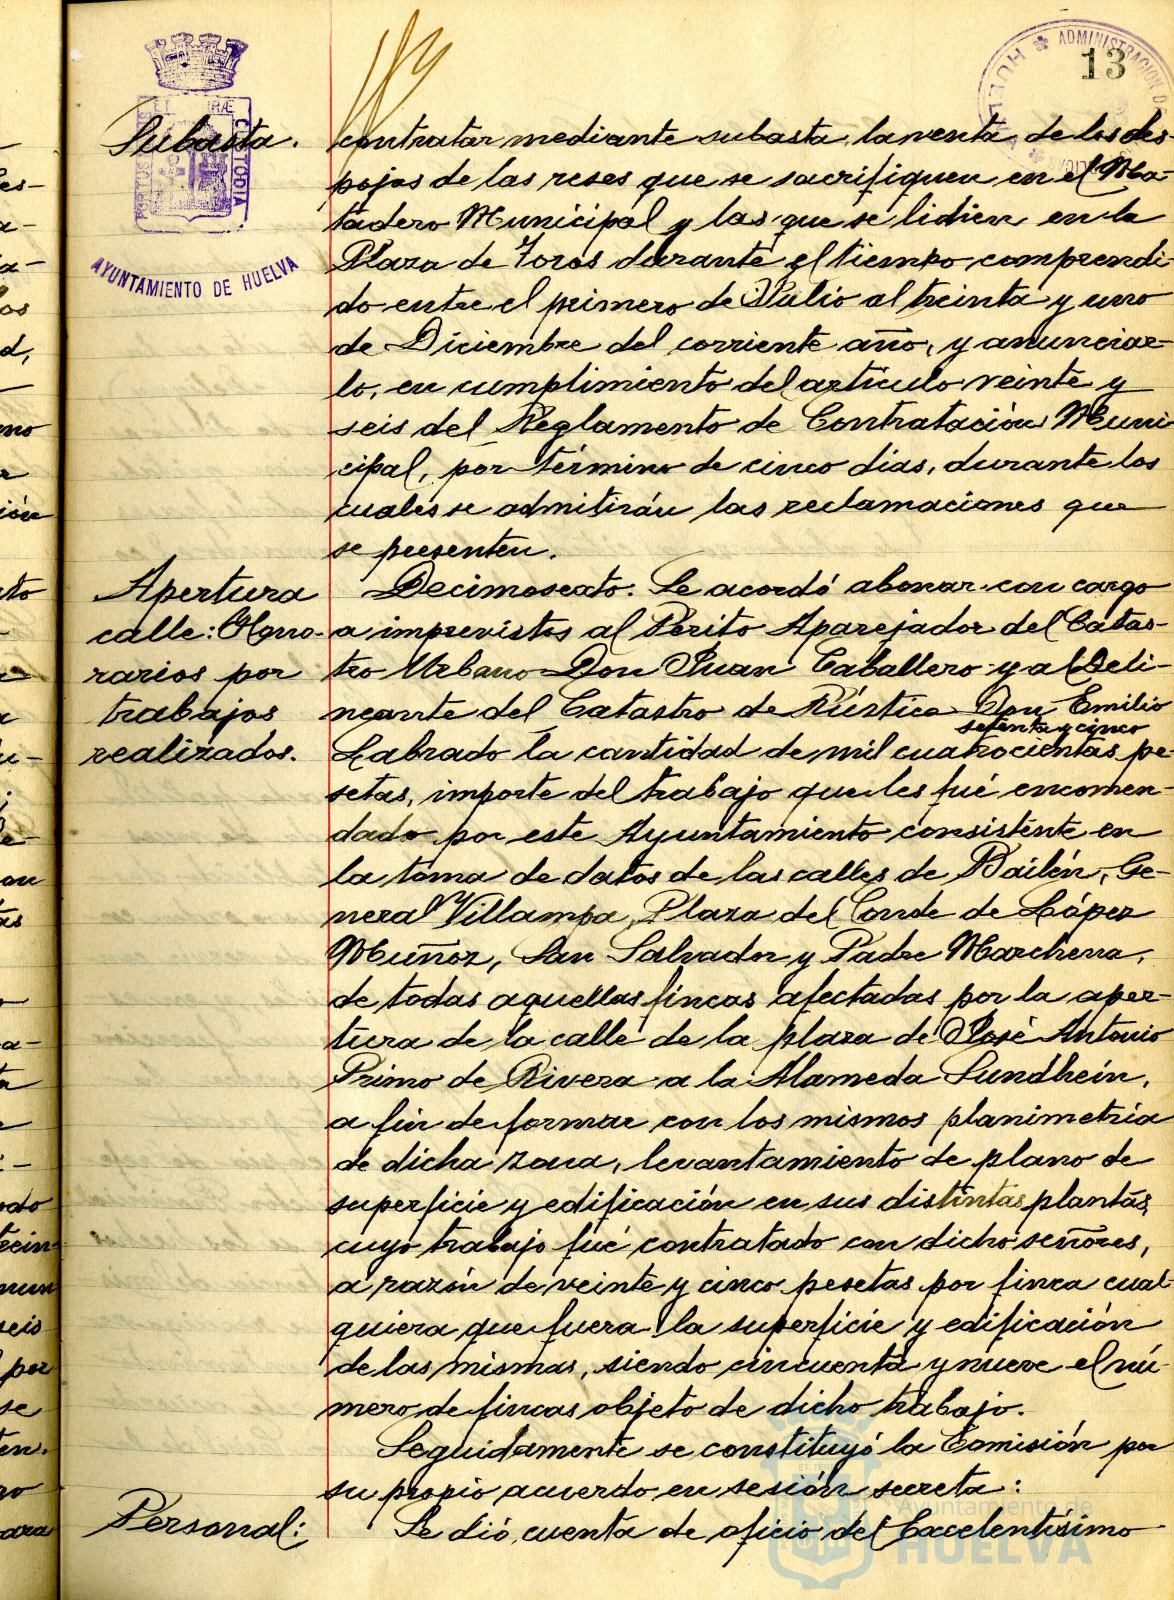 13
Subasta.
contratar mediante subasta la venta de los des-
pojos de las reses que se sacrifiquen en el Ma-
tadero Municipal y las que se lidien en la
Plaza de Toros durante el tiempo comprendi-
do entre el primero de Julio al treinta y uno
de Diciembre del corriente año, y anunciar-
lo, en cumplimiento del artículo veinte y
seis del Reglamento de Contratación Muni-
cipal, por término de cinco días, durante los
cuales se admitirán las reclamaciones que
se presenten.
Apertura
calle: Hono-
rarios por
trabajos
realizados.
Decimosexto. Se acordó abonar con cargo
a imprevistos al Périto Aparejador del Catas-
tro Urbano Don Juan Caballero y al Deli-
neante del Catastro de Rústica Don Emilio
setenta y cinco
Labrado la cantidad de mil cuatrocientas pe-
setas, importe del trabajo que les fué encomen-
dado por este Ayuntamiento consistente en
la toma de datos de las calles de Bailén, Ge-
neral Villampa, Plaza del Conde de López
Muñoz, San Salvador y Padre Marchena,
de todas aquellas fincas afectadas por la aper-
tura de la calle de la plaza de José Antonio
Primo de Rivera a la Alameda Sundhein,
a fin de formar con los mismos planimetría
de dicha zona, levantamiento de plano de
superficie y edificación en sus distintas plantas,
cuyo trabajo fué contratado con dicho señores,
a razón de veinte y cinco pesetas por finca cual-
quiera que fuera la superficie y edificación
de las mismas, siendo cincuenta y nueve el nú-
mero de fincas objeto de dicho trabajo.
Seguidamente se constituyó la Comisión por
su propio acuerdo en sesión secreta:
Personal:
Se dió cuenta de oficio del Excelentísimo
AYUNTAMIENTO DE HUELVA
CUSTODIA
HUELVA
ADMINISTRACION DE
Ayuntamiento de
HUELVA